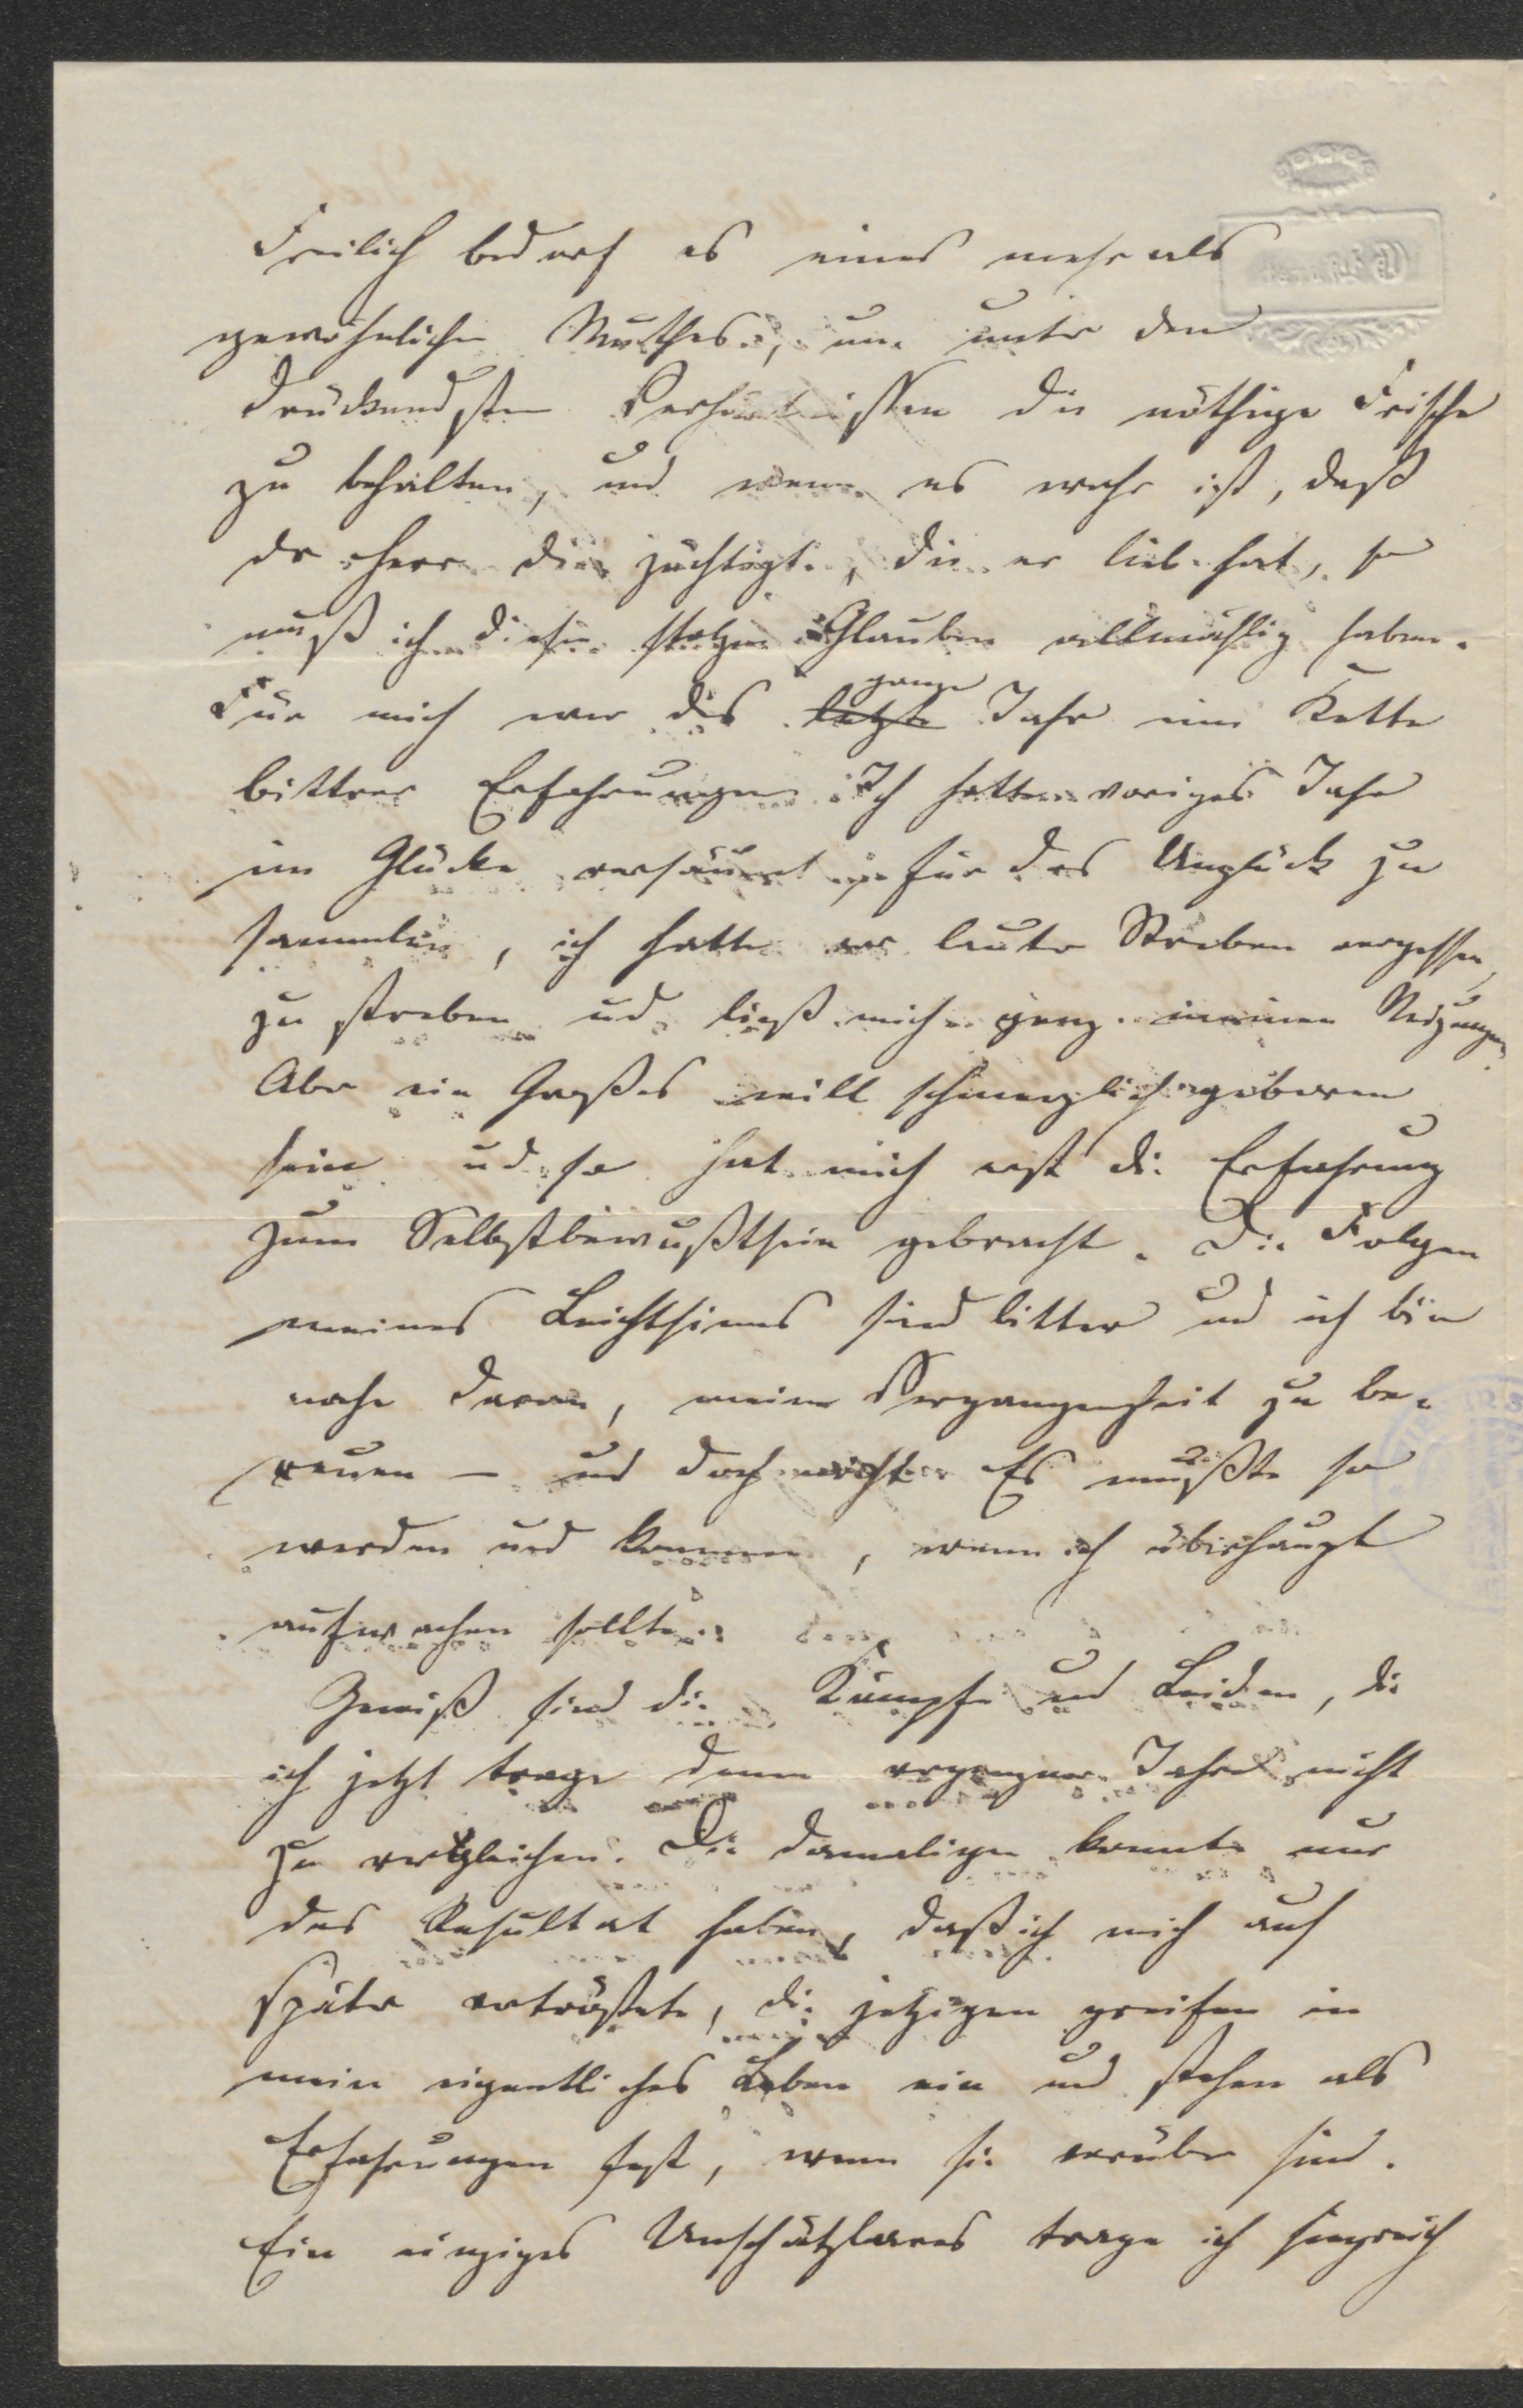 Freilich bedarf es eines mehr als
gewöhnlichen Muthes, um unter den
drückendsten Verhältnissen die nöthige Frische
zu behalten, und wenn es wahr ist, daß
der Herr die züchtigt, die er lieb hat, so
muß ich diesen stolzen Glauben allmählig haben.
Für mich war das letzte ganze Jahr eine Kette
bittrer Erfahrungen. Ich hatte voriges Jahr
im Glücke versäumt, für das Unglück zu
sammeln, ich hatte vor lauter Streben vergessen,
zu streben und ließ mich ganz meinen Neigungen.
Aber ein Großes will schmerzlich geboren
sein und so hat mich erst die Erfahrung
zum Selbstbewußtsein gebracht. Die Folgen
meines Leichtsinns sind bitter und ich bin
nahe daran, meine Vergangenheit zu be-
reuen – und doch nicht. Es mußte so
werden und kommen, wenn ich überhaupt
aufwachen sollte.
Gewiß sind die Kämpfe und Leiden, die
ich jetzt trage denen vergangner Jahre nicht
zu vergleichen. Die damaligen konnte nur
das Resultat haben, daß ich mich auf
später vertröstete, die jetzigen greifen in
mein eigentliches Leben ein und stehen als
Erfahrungen fest, wenn sie vorüber sind.
Ein einziges Unschätzbares trage ich siegreich